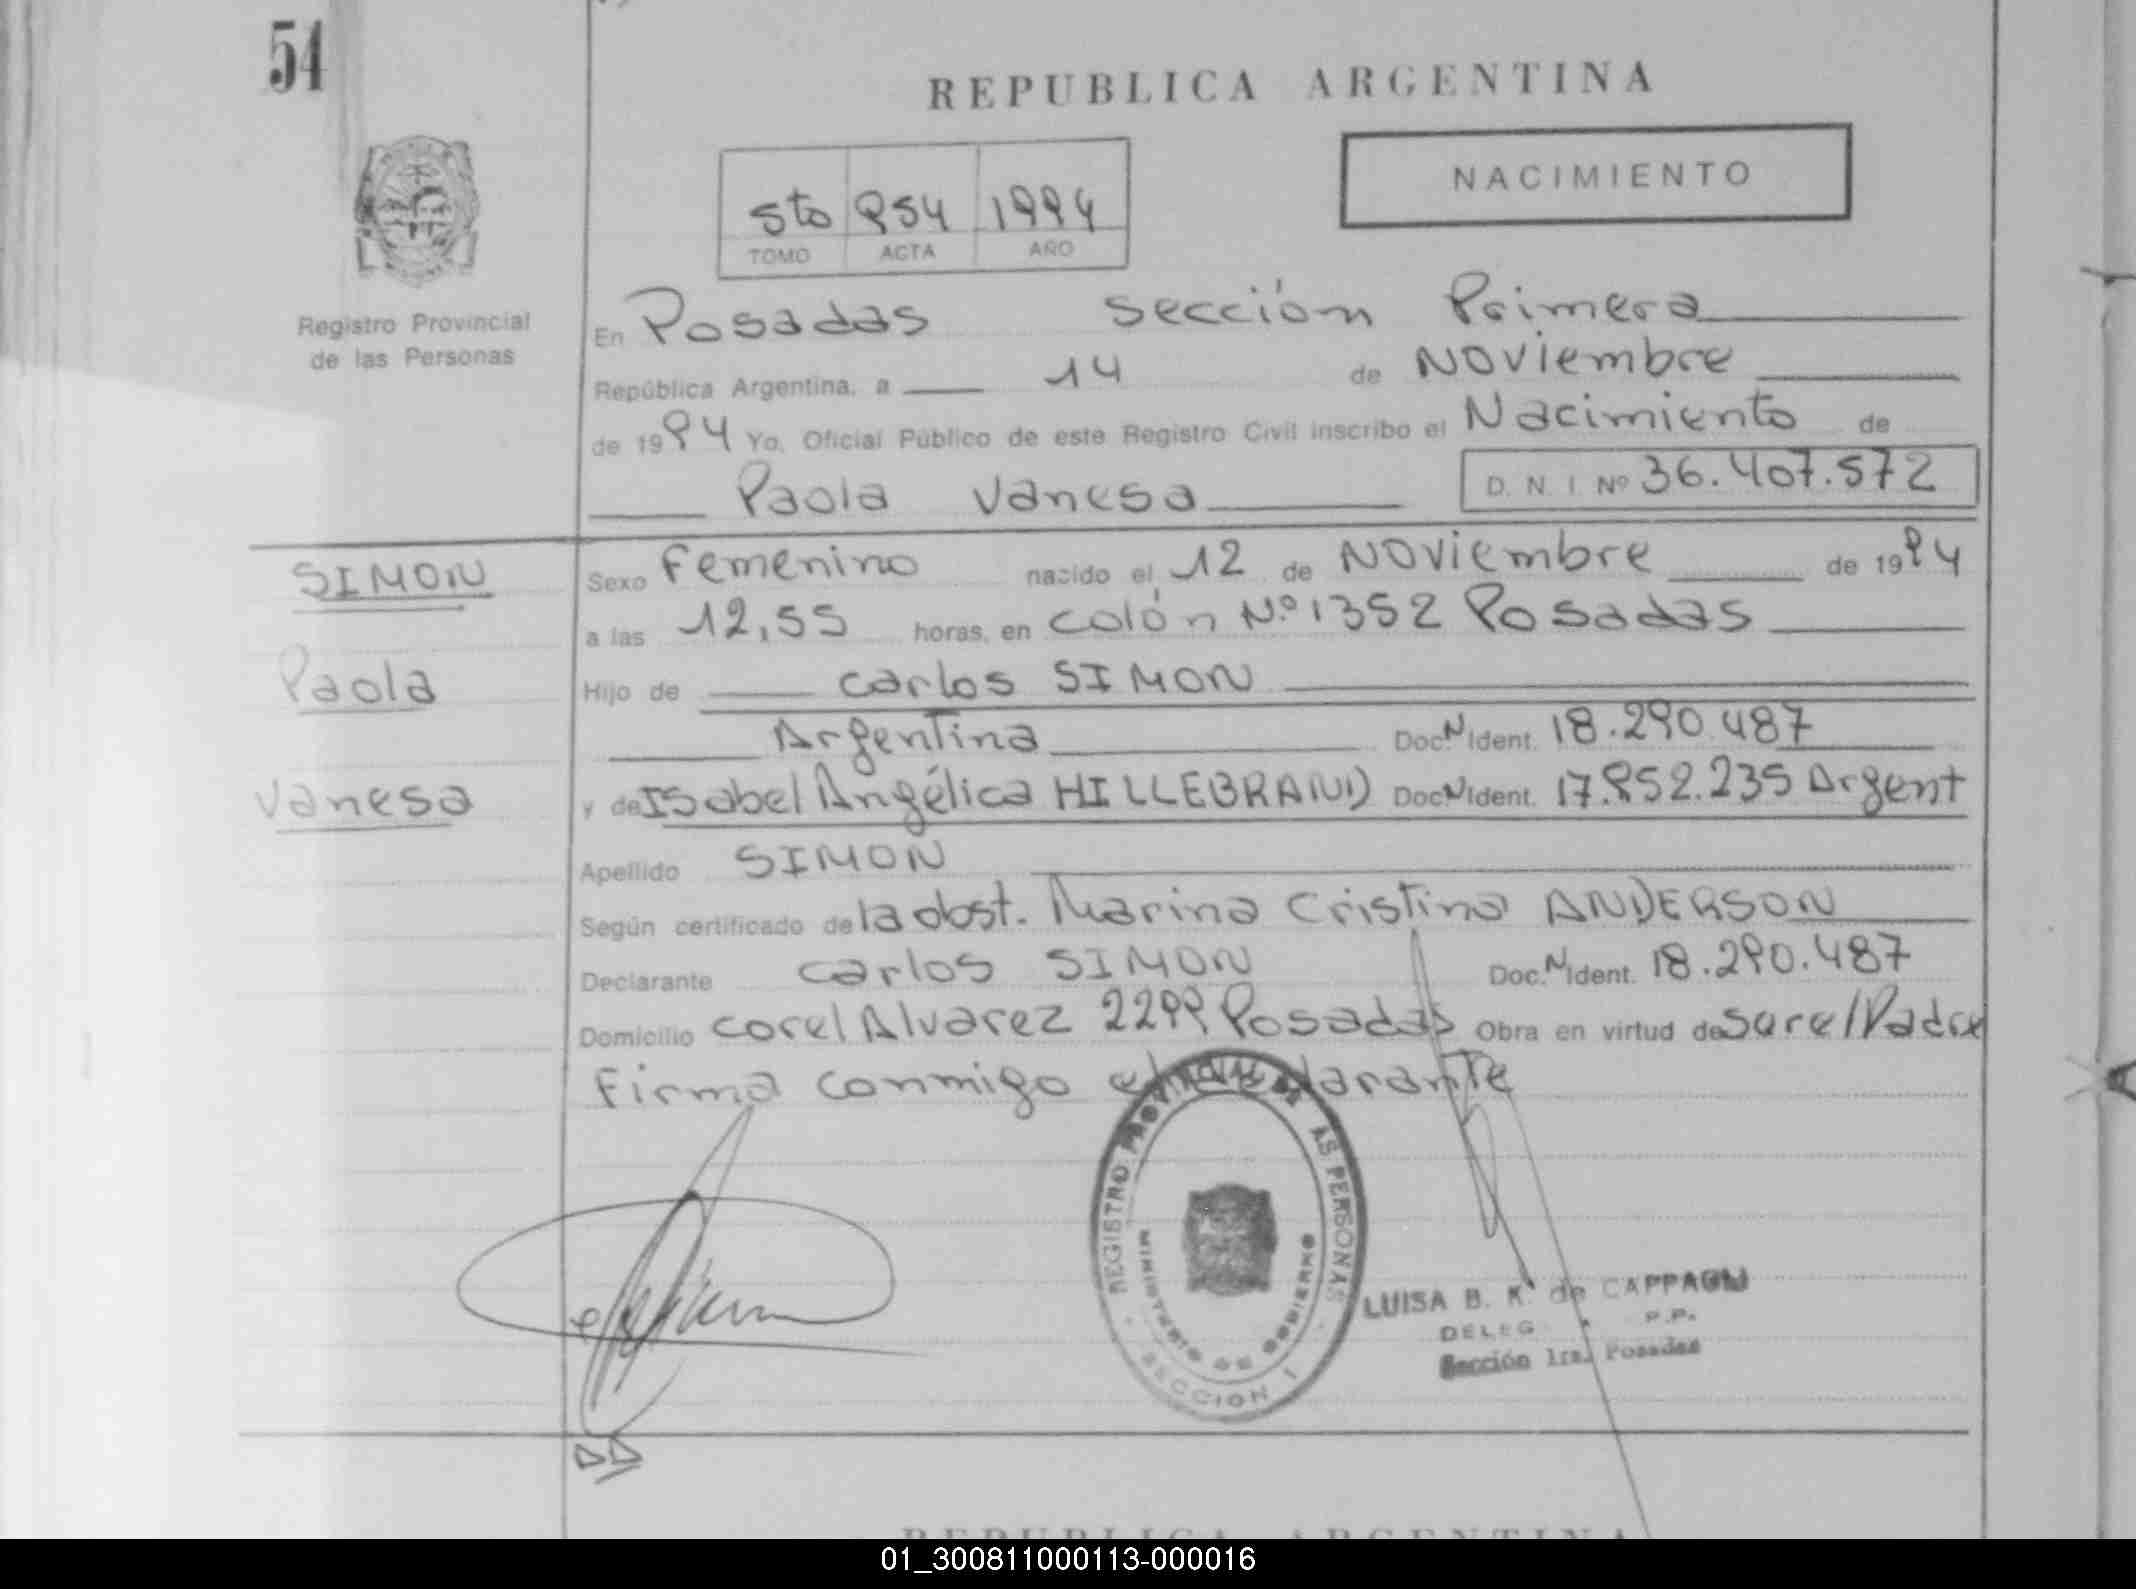 54
REPUBLICA ARGENTINA
NACIMIENTO
5to 954 1994
TOMO ACTA AÑO
Registro Provincial
de las Personas
En Posadas Sección Primera
República Argentina, a 14 de Noviembre
de 1994 Yo, Oficial Público de este Registro Civil inscribo el Nacimiento de
Paola Vanesa D. N. I. Nº 36.407.572
SIMON
Paola
Vanesa
Sexo Femenino nacido el 12 de Noviembre de 1994
a las 12,55 horas, en Colón Nº 1352 Posadas
Hijo de Carlos SIMON
Argentina Doc. N Ident. 18.290.487
y de Isabel Angélica HILLEBRAND Doc. N Ident. 17.952.235 Argent
Apellido SIMON
Según certificado de la obst. Marina Cristina ANDERSON
Declarante Carlos SIMON Doc. N Ident. 18.290.487
Domicilio Corel Alvarez 2299 Posadas Obra en virtud de Ser el Padre
Firma conmigo el declarante
REGISTRO PROVINCIAL DE LAS PERSONAS
MINISTERIO DE GOBIERNO
SECCION 1
LUISA B. K. de CAPPAGLI
DELEG. P.P.
Sección 1ra. Posadas
REPUBLICA ARGENTINA
01_300811000113-000016